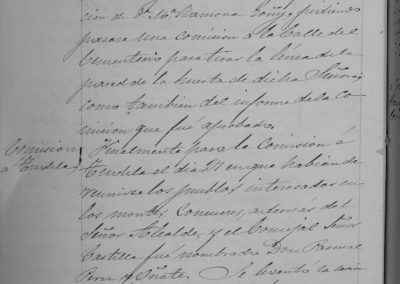 cion de Dª Mª Ramona Goñi pidiendo
pasase una comision á la Calle del
Cementerio para tirar la linea de la
pared de la huerta de dicha Señora;
como tambien del informe de la co-
mision que fué aprobado.
Comision
á Tudela
Finalmente para la Comision á
Tudela el dia 27 en que habian de
reunirse los pueblos interesados en
los montes Comunes, ademas del
Señor Alcalde, y el Concejal Señor
Castilla fué nombrado Don Pascual
Perez y Oñate. Se levantó la sesion